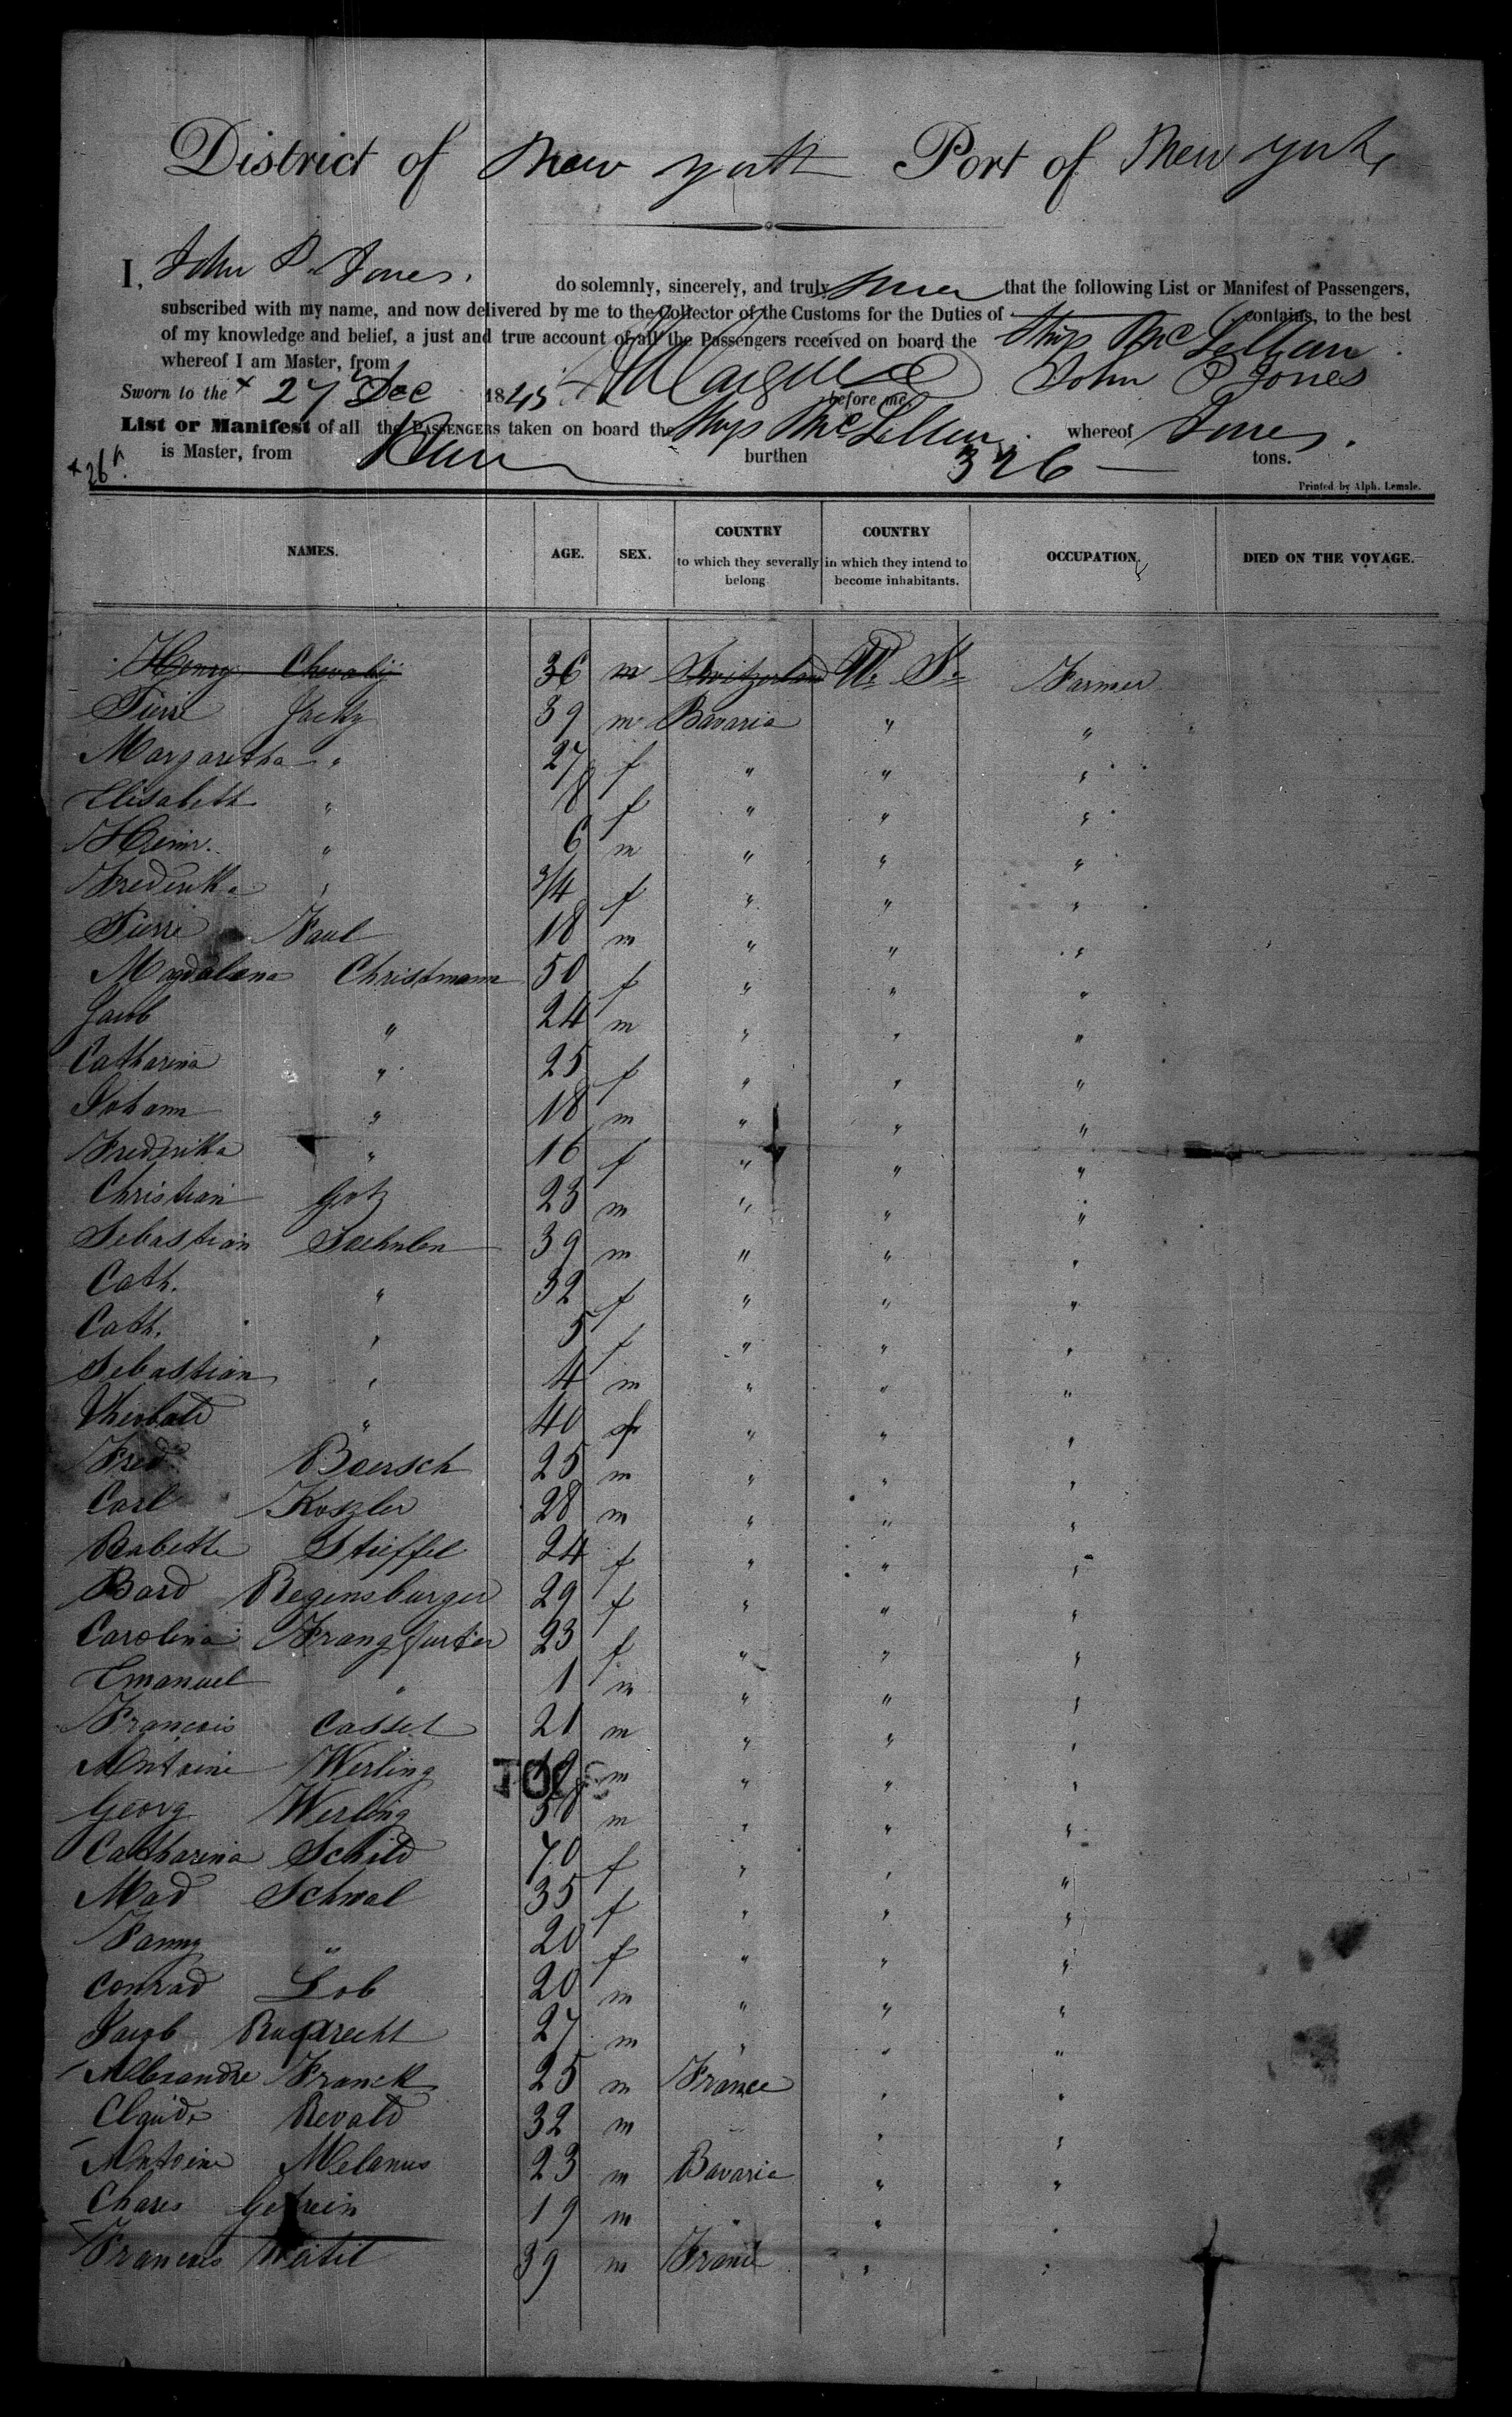 District of New York Port of New York
I, John P. Jones. do solemnly, sincerely, and truly swear that the following List or Manifest of Passengers,
subscribed with my name, and now delivered by me to the Collector of the Customs for the Duties of contains, to the best
of my knowledge and belief, a just and true account of all the Passengers received on board the Ship McLellan
whereof I am Master, from Havre
Sworn to the 27 Dec 1845 before me John P Jones
List or Manifest of all the PASSENGERS taken on board the Ship McLellan whereof Jones.
is Master, from Havre burthen 326 tons.
Printed by Alph. Lemale.
NAMES. AGE. SEX. COUNTRY to which they severally belong COUNTRY in which they intend to become inhabitants. OCCUPATION. DIED ON THE VOYAGE.
Henry 36 m Switzerland U. S. Farmer
Pierre Jacky 39 m Bavaria " "
Margaretha " 27 f " " "
Elisabeth " 8 f " " "
Heinr. " 6 m " " "
Frederika " 3/4 f " " "
Pierre Faul 18 m " " "
Magdalena Christmann 50 f " " "
Jacob " 24 m " " "
Catharina " 25 f " " "
Johann " 18 m " " "
Frederika " 16 f " " "
Christian Gotz 23 m " " "
Sebastian 39 m " " "
Cath. " 32 f " " "
Cath. " 5 f " " "
Sebastian " 4 m " " "
Theobald " 40 " " "
Fred Boersch 25 m " " "
Carl Koszler 28 m " " "
Babette Stieffel 24 f " " "
Bard Regensburger 29 f " " "
Carolina Frangfurter 23 f " " "
Emanuel " 1 m " " "
Francois Cassel 21 m " " "
Antoine Werling m " " "
Georg Werling 30 m " " "
Catharina Schild 70 f " " "
Mad Schwal 35 f " " "
Fanny " 20 f " " "
Conrad Lob 20 m " " "
Jacob Ruprecht 27 m " " "
Alexandre Franck 25 m France " "
Claude Revald 32 m " "
Antoine Melanus 23 m Bavaria " "
Chares 19 m " " "
Francois 39 m France " "